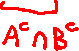 Aᶜ∩Bᶜ